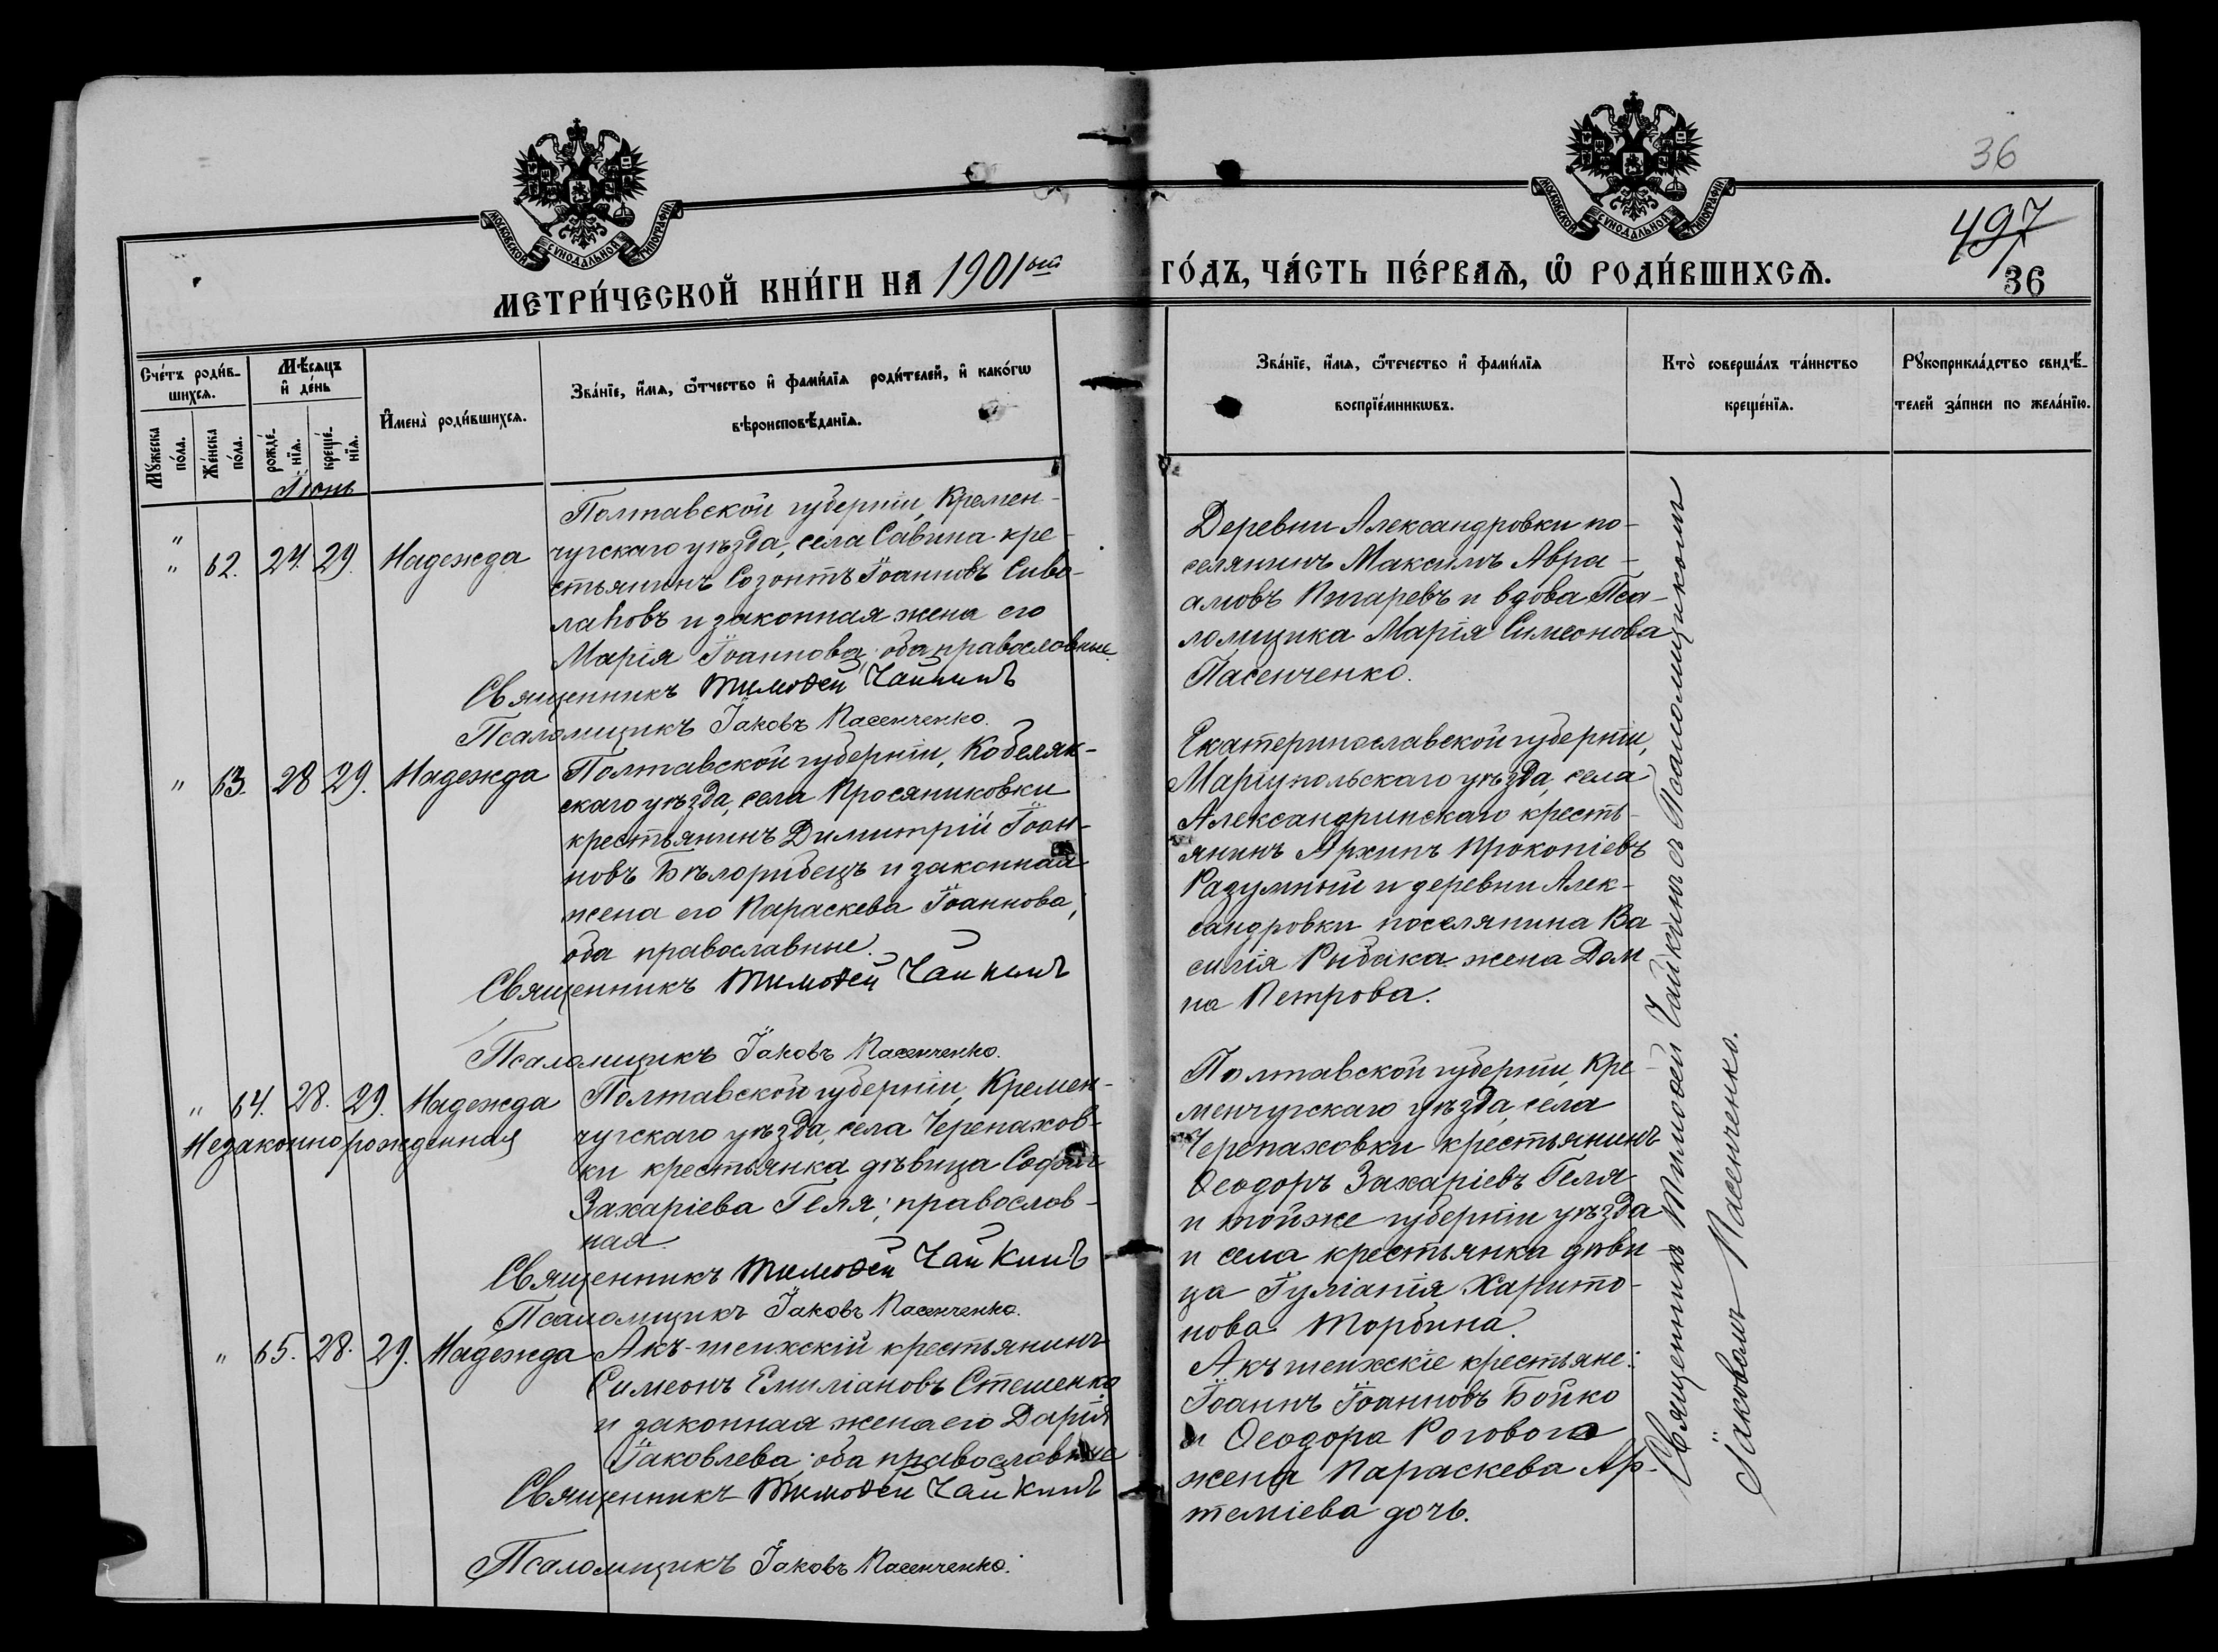 36
497
36
МОСКОВСКОЙ СѴНОДАЛЬНОЙ ТИПОГРАФІИ
МОСКОВСКОЙ СѴНОДАЛЬНОЙ ТИПОГРАФІИ
МЕТРИ́ЧЕСКОЙ КНИ́ГИ НА 1901ый ГО́ДЪ, ЧА́СТЬ ПЕ́РВАѦ, Ѿ РОДИ́ВШИХСѦ.
Сче́тъ роди́в-
шихсѧ.
Мꙋ́жеска по́ла.
Же́нска по́ла.
Мѣ́сѧцъ
и҆ де́нь
рожде́-
нїѧ.
креще́-
нїѧ.
И҆мена̀ роди́вшихсѧ.
Зва́нїе, и҆́мѧ, ѻ҆́тчество и҆ фами́лїѧ роди́телей, и҆ како́гѡ
вѣроисповѣ́данїѧ.
Зва́нїе, и҆́мѧ, ѻ҆те́чество и҆ фами́лїѧ
воспрїе́мникѡвъ.
Кто̀ соверша́лъ та́инство
креще́нїѧ.
Рꙋкоприкла́дство свидѣ́-
телей за́писи по жела́нїю.
Іюнь
" " 62. 24. 29. Надежда
Полтавской губерніи, Кремен-
чугскаго уѣзда, села Савина кре-
стьянинъ Созонтъ Іоанновъ Сиво-
лаповъ и законная жена его
Марія Іоаннова; оба православные.
Священникъ Тимоѳей Чайкинъ
Псаломщикъ Іаковъ Пасенченко.
Деревни Александровки по-
селянинъ Максимъ Авра-
амовъ Пигаревъ и вдова Пса-
ломщика Марія Симеонова
Пасенченко.
" 63. 28 29. Надежда
Полтавской губерніи, Кобеляк-
скаго уѣзда, села Просяниковки
крестьянинъ Димитрій Іоан-
новъ Бѣлорибецъ и законная
жена его Параскева Іоаннова;
оба православные.
Священникъ Тимоѳей Чайкинъ
Псаломщикъ Іаковъ Пасенченко.
Екатеринославской губерніи,
Маріупольскаго уѣзда, села
Александринскаго кресть-
янинъ Архипъ Прокопіевъ
Разумный и деревни Алек-
сандровки поселянина Ва
силія Рыбака жена Дом
на Петрова.
" 64. 28. 29. Надежда
Незаконнорожденная
Полтавской губерніи, Кремен-
чугскаго уѣзда, села Черепахов-
ки крестьянка дѣвица Софія
Захаріева Геля; православ-
ная.
Священникъ Тимоѳей Чайкинъ
Псаломщикъ Іаковъ Пасенченко.
Полтавской губерніи, Кре-
менчугскаго уѣзда, села
Черепаховки крестьянинъ
Ѳеодоръ Захаріевъ Геля
и тойже губерніи уѣзда
и села крестьянка дѣви
ца Іуліанія Харито-
нова Торбина.
" 65. 28. 29. Надежда
Акъ-шеихскій крестьянинъ
Симеонъ Емиліановъ Стешенко
и законная жена его Дарія
Іаковлева; оба православные
Священникъ Тимоѳей Чайкинъ
Псаломщикъ Іаковъ Пасенченко.
Акъшеихскіе крестьяне:
Іоаннъ Іоанновъ Бойко
и Ѳеодора Роговога
жена Параскева Ар-
теміева дочь.
Священникъ Тимоѳей Чайкинъ съ Псаломщикомъ
Іаковомъ Пасенченко.